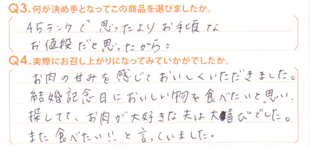 Q3.何が決め手となってこの商品を選びましたか。
A5ランクで思ったよりお手頃な
お値段だと思ったから。
Q4.実際にお召し上がりになってみていかがでしたか。
お肉の甘みを感じておいしくいただきました。
結婚記念日においしい物を食べたいと思い、
探してて、お肉が大好きな夫は大喜びでした。
また食べたい!!と言っていました。